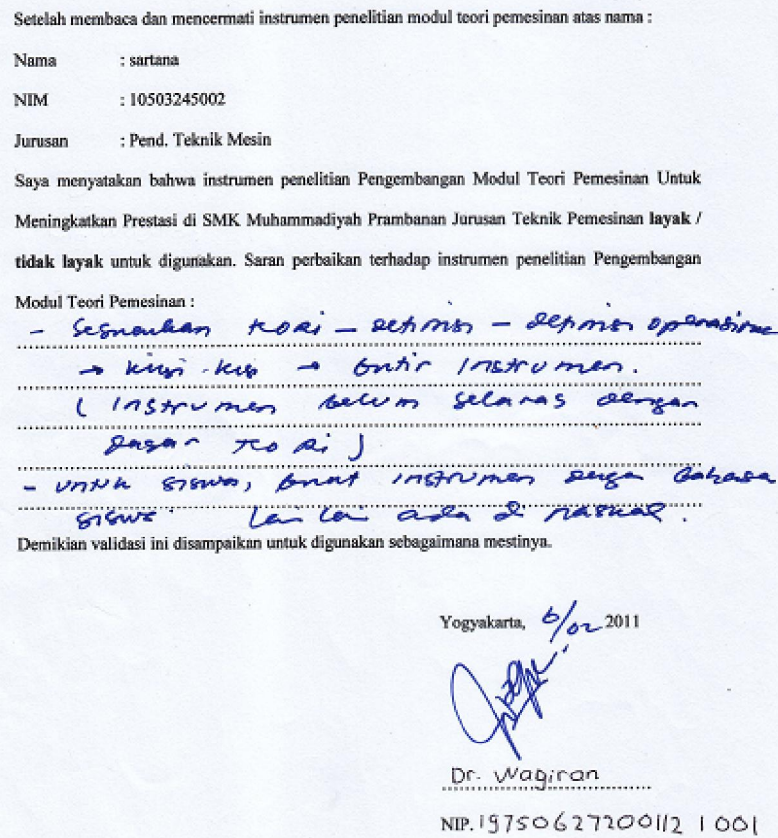 Setelah membaca dan mencermati instrumen penelitian modul teori pemesinan atas nama :
Nama : sartana
NIM : 10503245002
Jurusan : Pend. Teknik Mesin
Saya menyatakan bahwa instrumen penelitian Pengembangan Modul Teori Pemesinan Untuk
Meningkatkan Prestasi di SMK Muhammadiyah Prambanan Jurusan Teknik Pemesinan layak /
tidak layak untuk digunakan. Saran perbaikan terhadap instrumen penelitian Pengembangan
Modul Teori Pemesinan :
- Sesuaikan teori - definisi - definisi operasional
→ kisi-kisi → butir instrumen.
( instrumen belum selaras dengan
dasar teori )
- untuk siswa, buat instrumen dengan bahasa
siswa. Lain lain ada di naskah.
Demikian validasi ini disampaikan untuk digunakan sebagaimana mestinya.
Yogyakarta, 6/02 2011
Dr. Wagiran
NIP. 19750627200112 1 001